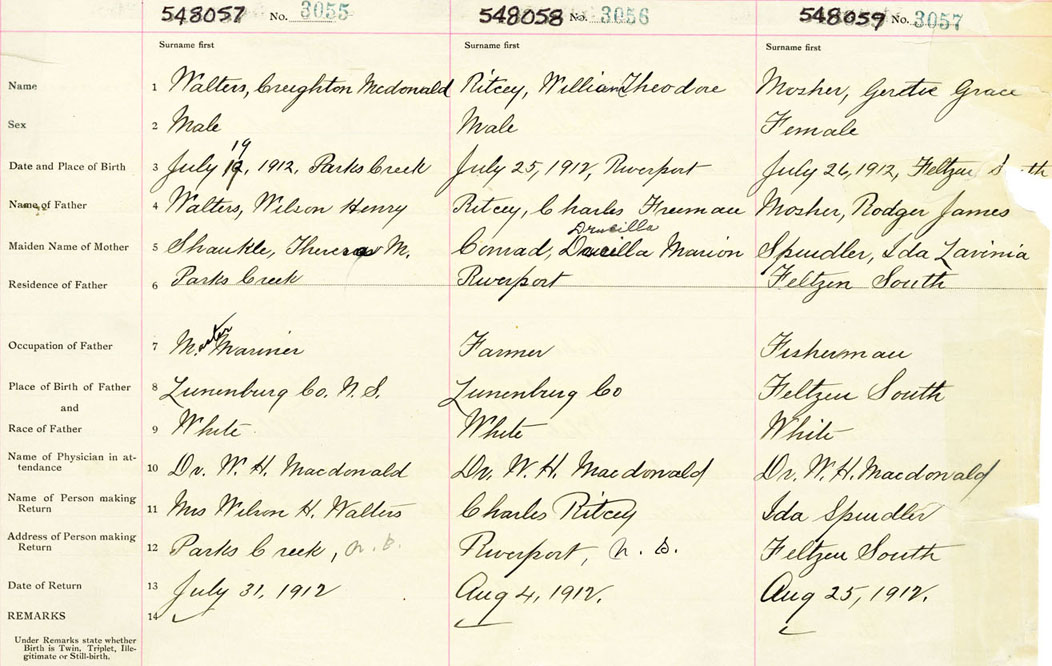 548057 No. 3055 548058 No. 3056 548059 No. 3057
Surname first Surname first Surname first
Name 1 Walters, Creighton Mcdonald Ritcey, William Theodore Mosher, Gertie Grace
Sex 2 Male Male Female
19
Date and Place of Birth 3 July 12, 1912, Parks Creek July 25, 1912, Riverport July 26, 1912, Feltzen S th
Name of Father 4 Walters, Wilson Henry Ritcey, Charles Freeman Mosher, Rodger James
Drucilla
Maiden Name of Mother 5 Shankle, Theresa M. Conrad, Drucilla Marion Spindler, Ida Lavinia
Residence of Father 6 Parks Creek Riverport Feltzen South
Occupation of Father 7 Master Mariner Farmer Fisherman
Place of Birth of Father 8 Lunenburg Co. N. S. Lunenburg Co Feltzen South
and
Race of Father 9 White White White
Name of Physician in at-
tendance 10 Dr. W. H. Macdonald Dr. W. H. Macdonald Dr. W. H. Macdonald
Name of Person making
Return 11 Mrs Wilson H. Walters Charles Ritcey Ida Spindler
Address of Person making
Return 12 Parks Creek, n. b. Riverport, n. b. Feltzen South
Date of Return 13 July 31, 1912 Aug 4, 1912. Aug 25, 1912.
REMARKS 14
Under Remarks state whether
Birth is Twin, Triplet, Ille-
gitimate or Still-birth.